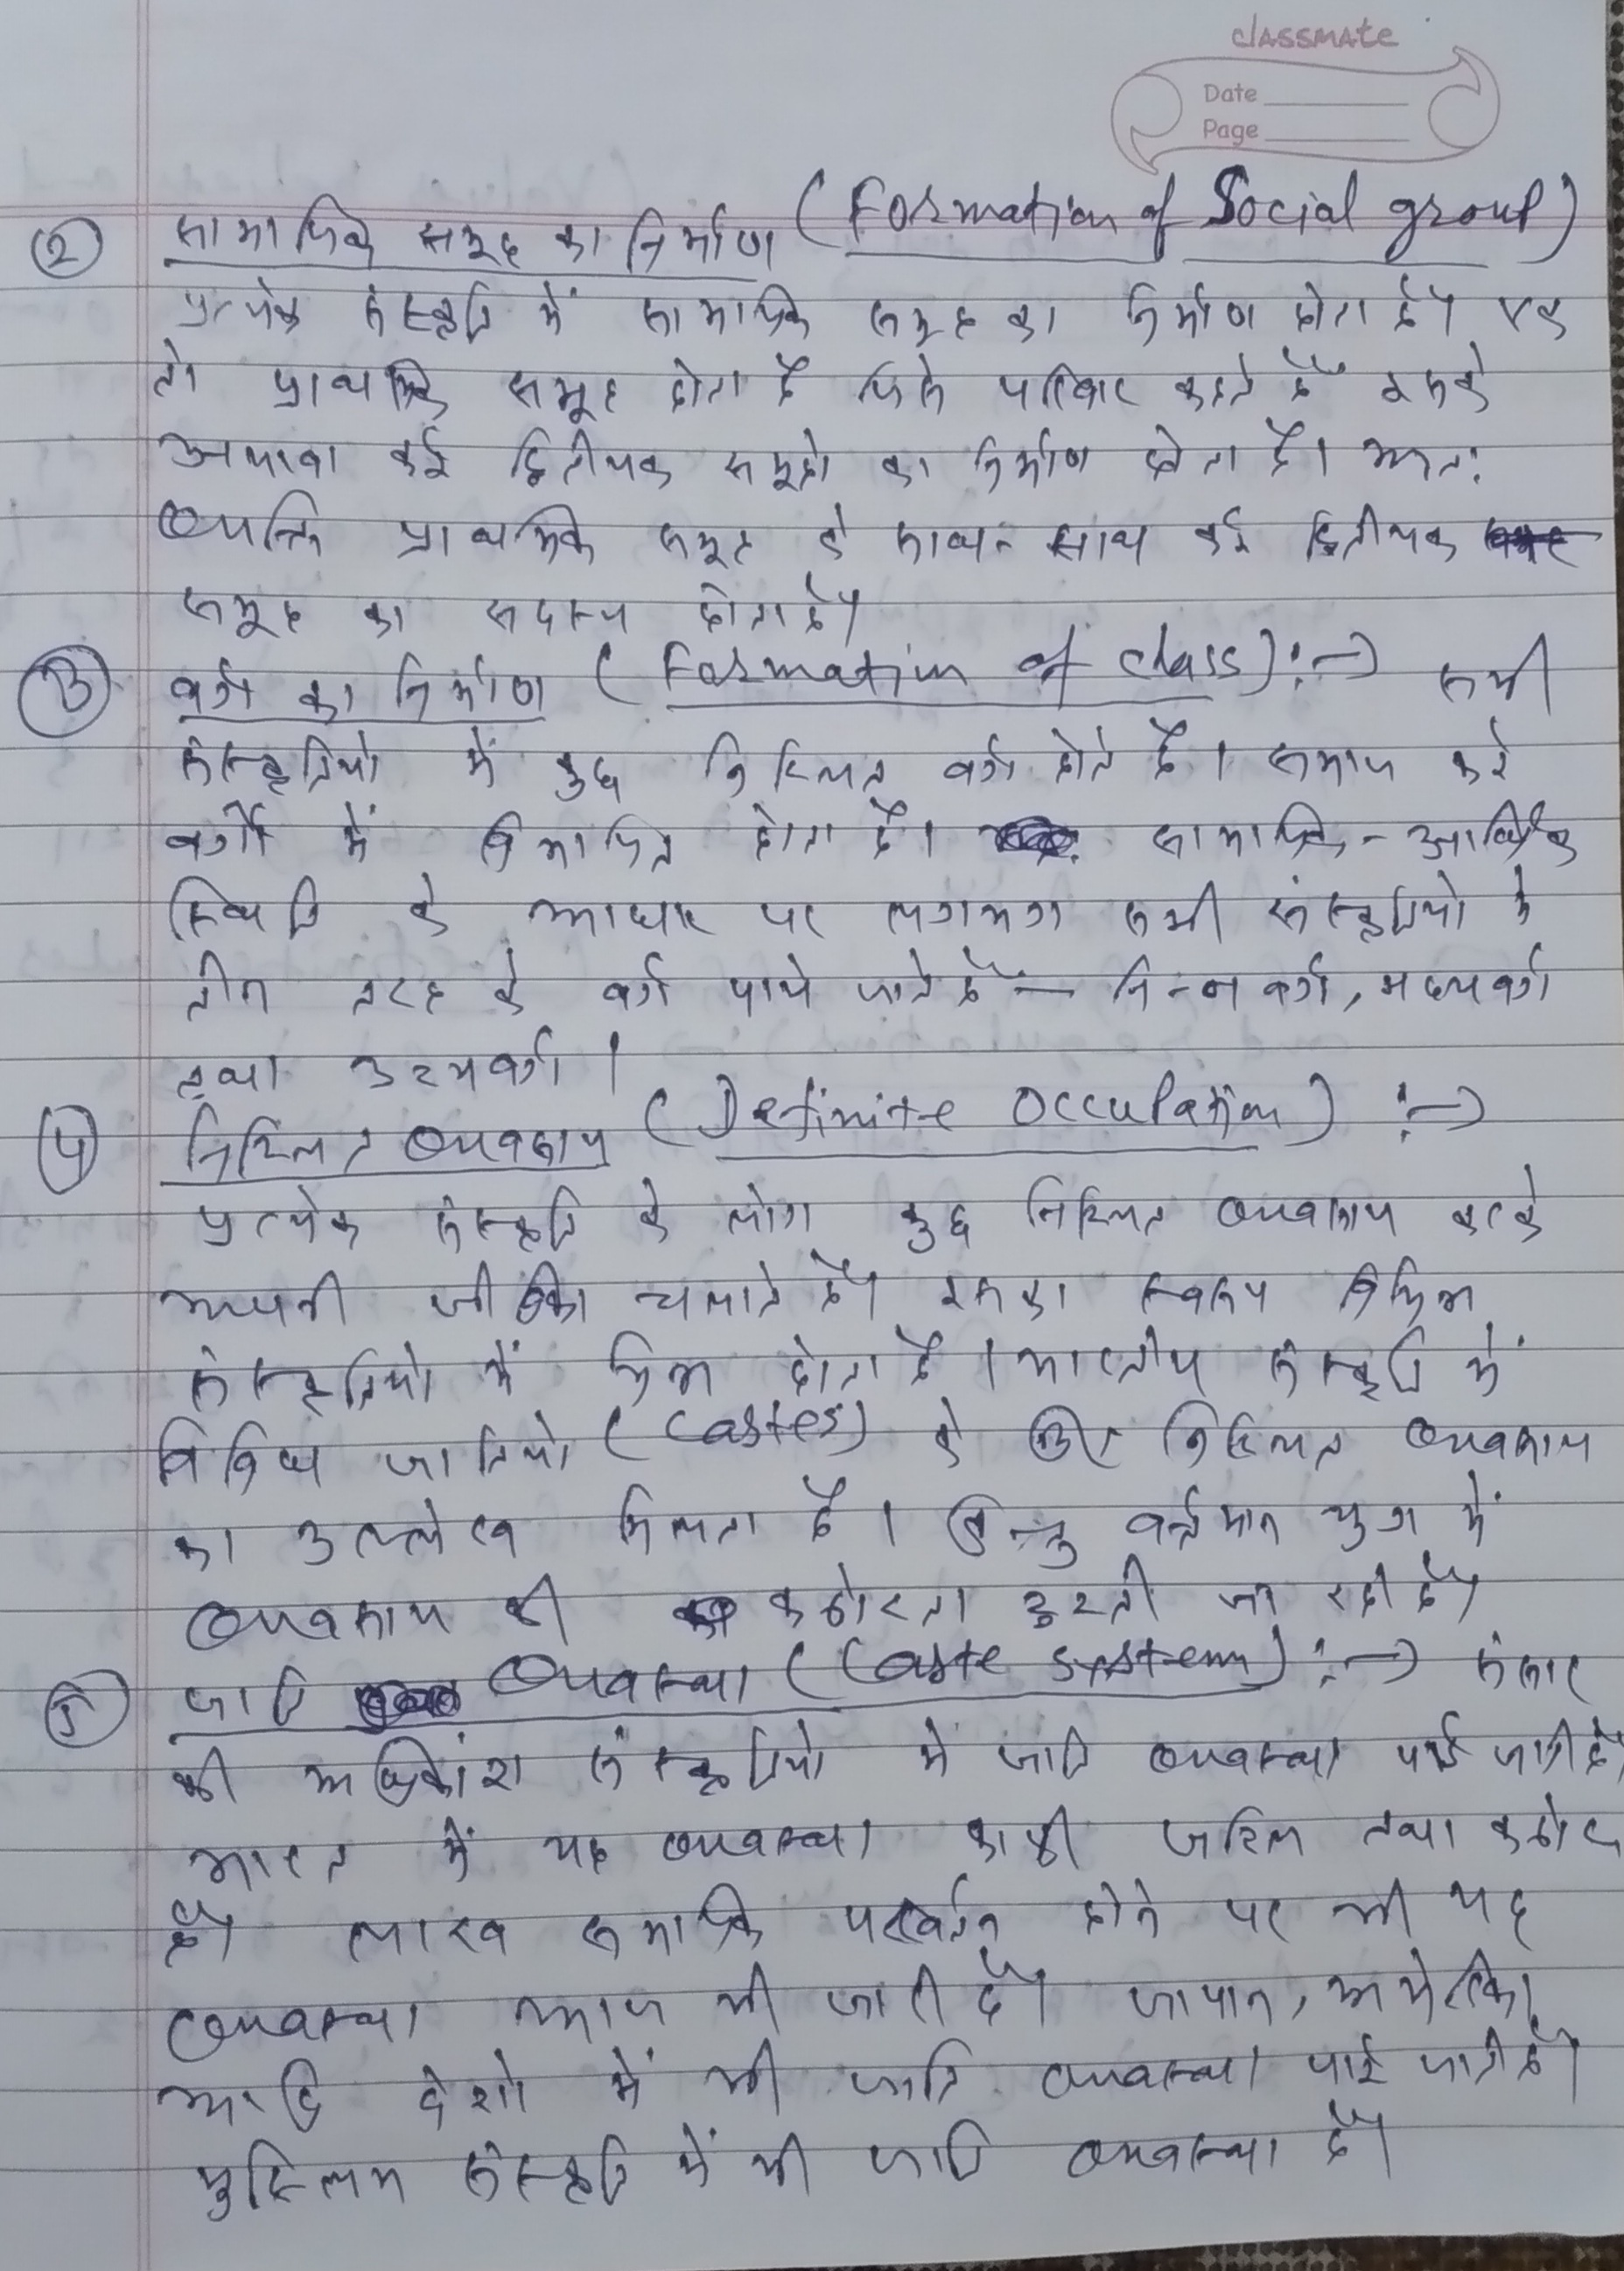 classmate
Date
Page
② सामाजिक समूह का निर्माण (Formation of Social group)
प्रत्येक संस्कृति में सामाजिक समूह का निर्माण होता है। एक
तो प्राथमिक समूह होता है जिसे परिवार कहते हैं इसके
अलावा कई द्वितीयक समूहो का निर्माण होता है। अतः
व्यक्ति प्राथमिक समूह के साथ-साथ कई द्वितीयक
समूह का सदस्य होता है।
③ वर्ग का निर्माण (Formation of class) :→ सभी
संस्कृतियो में कुछ निश्चित वर्ग होते है। समाज कई
वर्गों में विभाजित होता है। सामाजिक-आर्थिक
स्थिति के आधार पर लगभग सभी संस्कृतियो मे
तीन तरह के वर्ग पाये जाते हैं – निम्न वर्ग, मध्यवर्ग
तथा उच्चवर्ग।
④ निश्चित व्यवसाय (Definite Occupation) :→
प्रत्येक संस्कृति के लोग कुछ निश्चित व्यवसाय करके
अपनी जीविका चलाते है। इसका स्वरूप विभिन्न
संस्कृतियो में भिन्न होता है। भारतीय संस्कृति में
विभिन्न जातियो (Castes) के लिए निश्चित व्यवसाय
का उल्लेख मिलता है। किन्तु वर्तमान युग में
व्यवसाय की कठोरता टुटती जा रही है।
⑤ जाति व्यवस्था (Caste System) :→ संसार
की अधिकांश संस्कृतियो मे जाति व्यवस्था पाई जाती है।
भारत में यह व्यवस्था काफी जटिल तथा कठोर
है। लाख समाजिक परिवर्तन होने पर भी यह
व्यवस्था आज भी जारी है। जापान, अमेरिका
आदि देशो में भी जाति व्यवस्था पाई जाती है।
मुस्लिम संस्कृति में भी जाति व्यवस्था है।